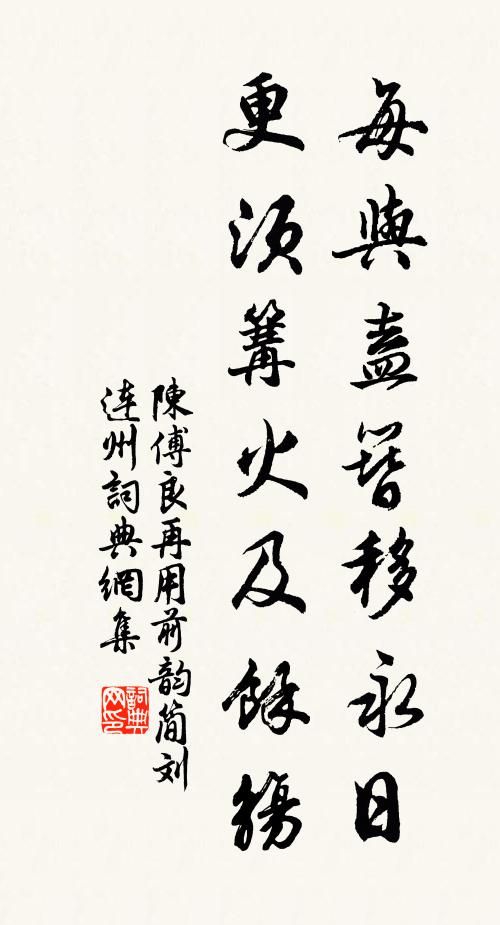 每與盍簪移永日
更須篝火及餘觴
陳傅良再用前韵簡刘
連州詞典網集
詞典网印